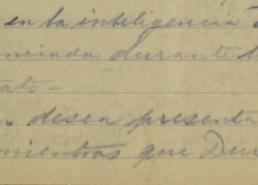 en la inteligencia
nciada durante
ato -
desea presenta
mientras que Dur